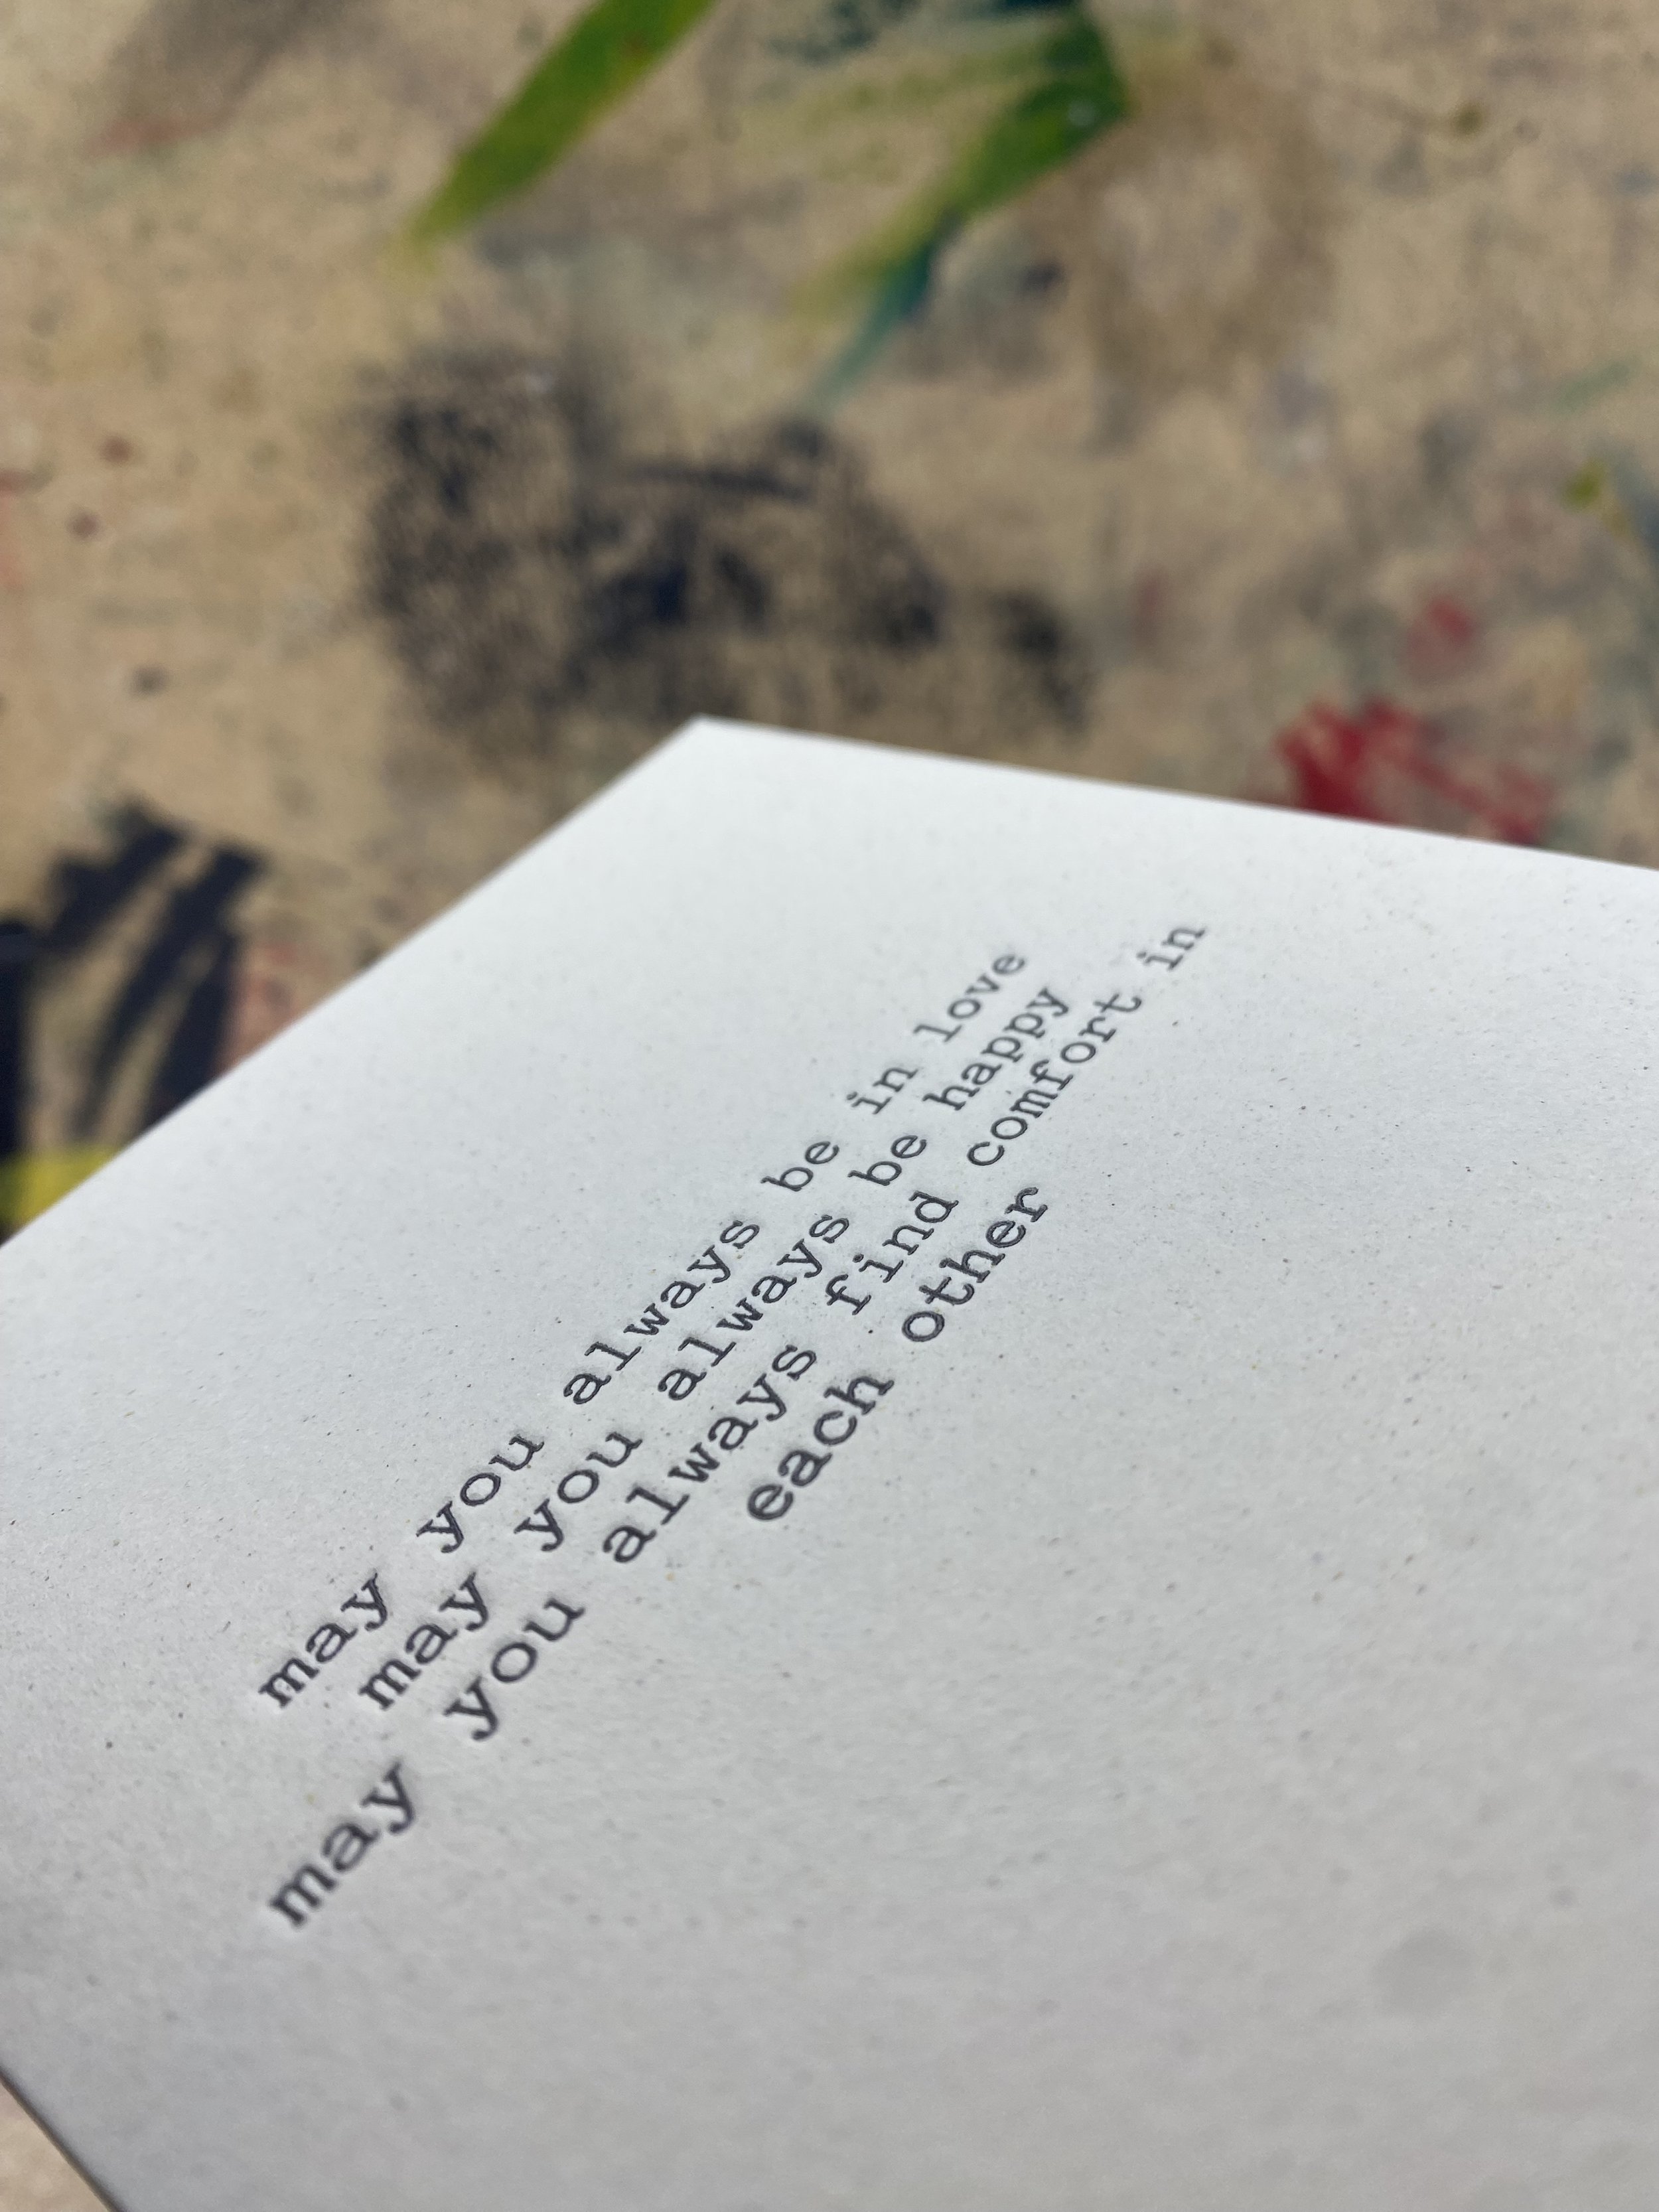 may you always be in love
may you always be happy
may you always find comfort in
each other